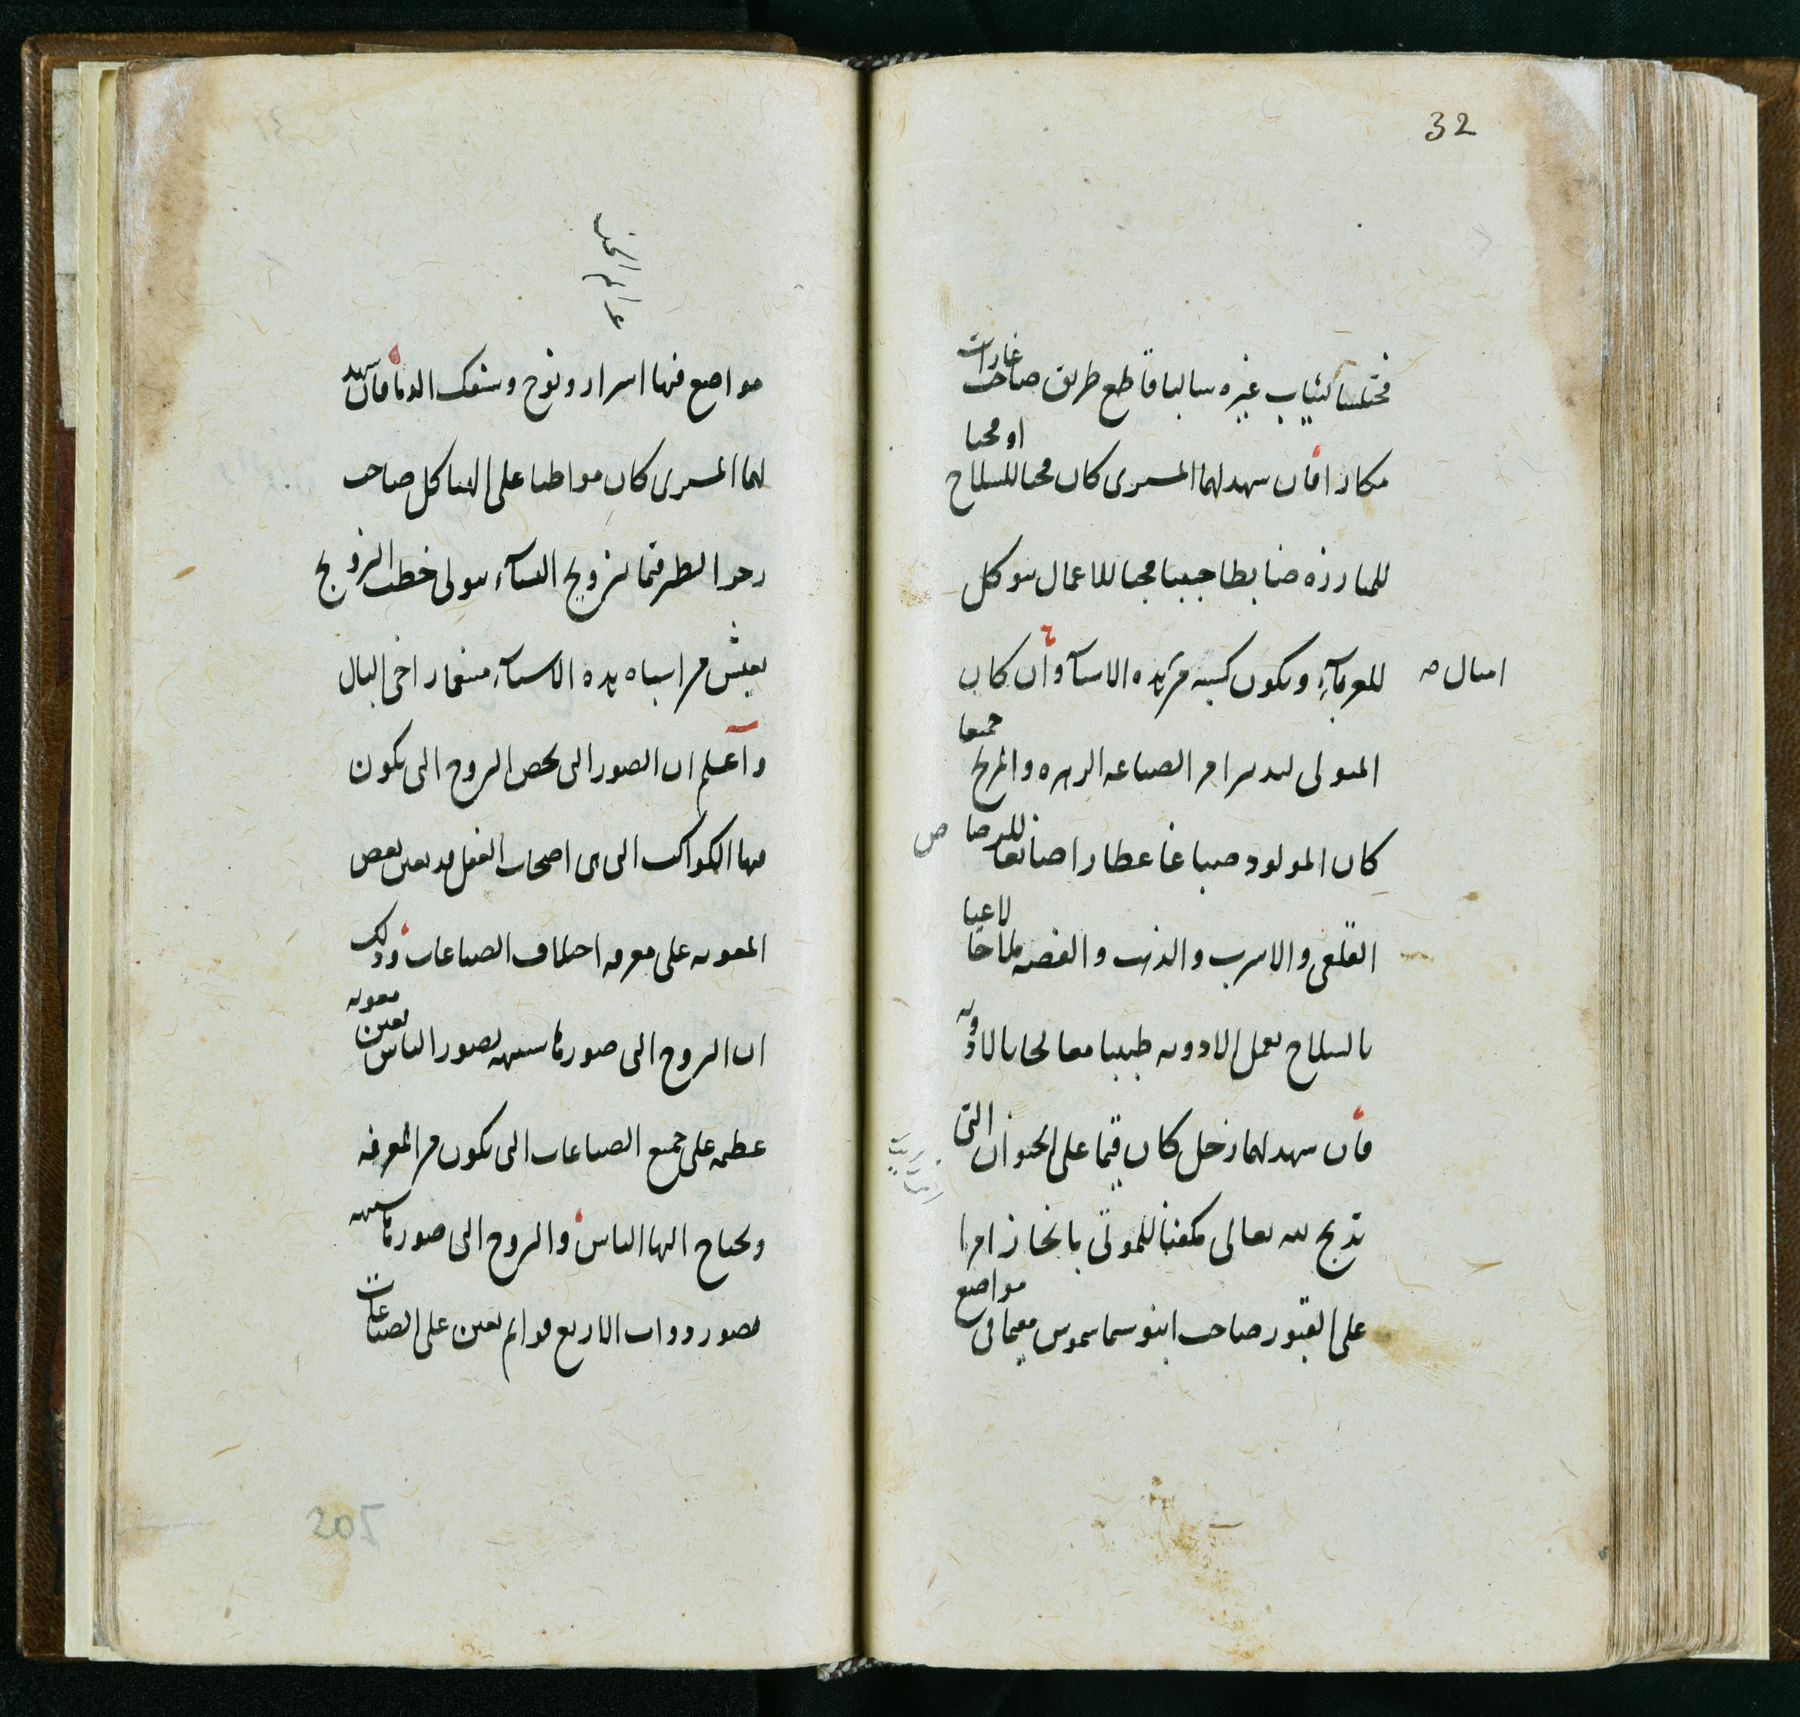 32
مختلسا لثياب غيره سالبا قاطع طريق صاحب غارات
مكارا فان شهد لهما المشترى كان محبا للسلاح او محبا
للمبارزة ضابطا محبا للاعمال يتوكل
امثال
للغرباء ويكون كسبه من هذه الاشياء وان كان
المتولى لتدبير امر الصناعة الزهرة والمريخ جميعا
كان المولود صباغا عطارا صانعا للرصاص
القلعى والاسرب والذهب والفضة لاعبا
بالسلاح يعمل الادوية طبيبا معالجا بالادوية
فان شهد لهما زحل كان قيما على الحيوان التى
تذبح لله تعالى مكفنا للموتى
على القبور صاحب مقيما فى مواضع
مواضع فيها اسرار ونوح وسفك الدما فان شهد
لهما المشترى كان مواظبا على الهياكل صاحب
زجر الطير قيما بتزويج النساء يتولى خطب التزويج
يعيش من اشباه هذه الاشياء متنعما رخى البال
واعلم ان الصور التى تخص البروج التى تكون
فيها الكواكب التى هى اصحاب الفعل قد تعين بعض
المعونة على معرفة اختلاف الصناعات وذلك
ان البروج التى صورها شبيهة بصور الناس تعين معونة
عظيمة على جميع الصناعات التى تكون من المعرفة
ويحتاج اليها الناس والبروج التى صورها شبيهة
بصور ذوات الاربع قوائم تعين على الصناعات
205